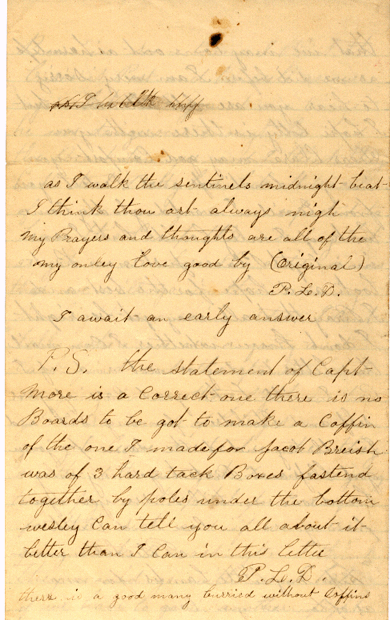 as I walk the sentinels midnight beat
I think thou art always nigh
My Prayers and thoughts are all of the
my onley Love good by (Original)
P. L. D.
I await an early answer
P.S. the statement of Capt-
More is a Correct one there is no
Boards to be got to make a Coffin
of the one I made for Jacob Breish
was of 3 hard tack Boxes fastend
together by poles under the bottom
wesley Can tell you all about it
better than I Can in this letter
P. L. D.
there is a good many burried without Coffins